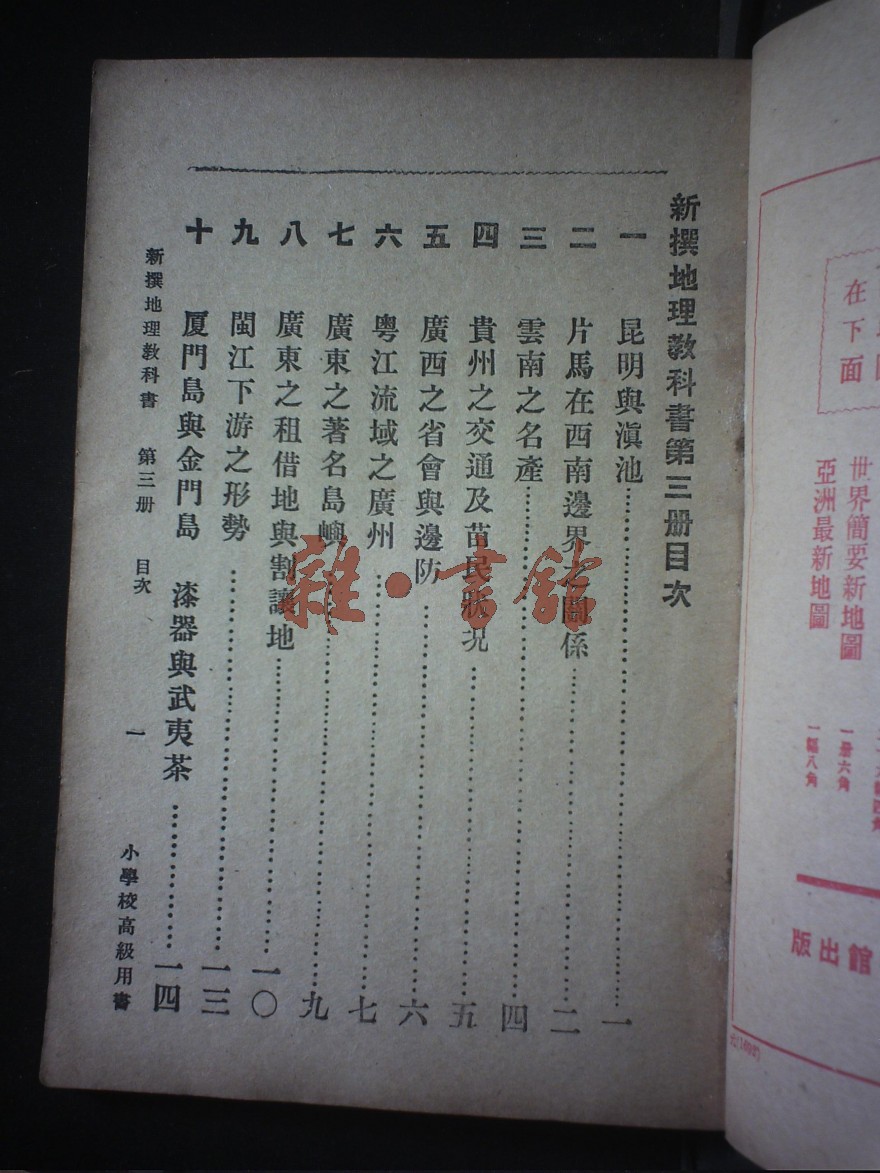 新撰地理教科書第三册目次
一 昆明與滇池……一
二 片馬在西南邊界之關係……二
三 雲南之名產……四
四 貴州之交通及苗民狀況……五
五 廣西之省會與邊防……六
六 粵江流域之廣州……七
七 廣東之著名島嶼……九
八 廣東之租借地與割讓地……一〇
九 閩江下游之形勢……一三
十 厦門島與金門島 漆器與武夷茶……一四
新撰地理教科書 第三册 目次 一 小學校高級用書
雜·書館
在下面
世界簡要新地圖 一册六角
亞洲最新地圖 一幅八角
館出版